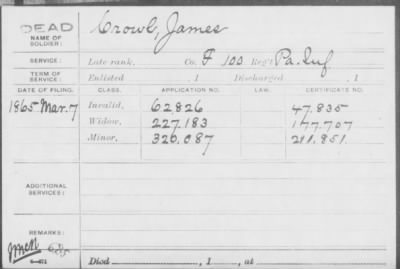 DEAD
NAME OF
SOLDIER:
Crowl, James
SERVICE: Late rank, Co. F 100 Reg't Pa. Inf
TERM OF
SERVICE: Enlisted , 1 Discharged , 1
DATE OF FILING. CLASS. APPLICATION NO. LAW. CERTIFICATE NO.
1865 Mar. 7 Invalid, 62826 47.835
Widow, 227.183 177.707
Minor, 320.087 211.851
ADDITIONAL
SERVICES:
REMARKS:
Died , 1 , at